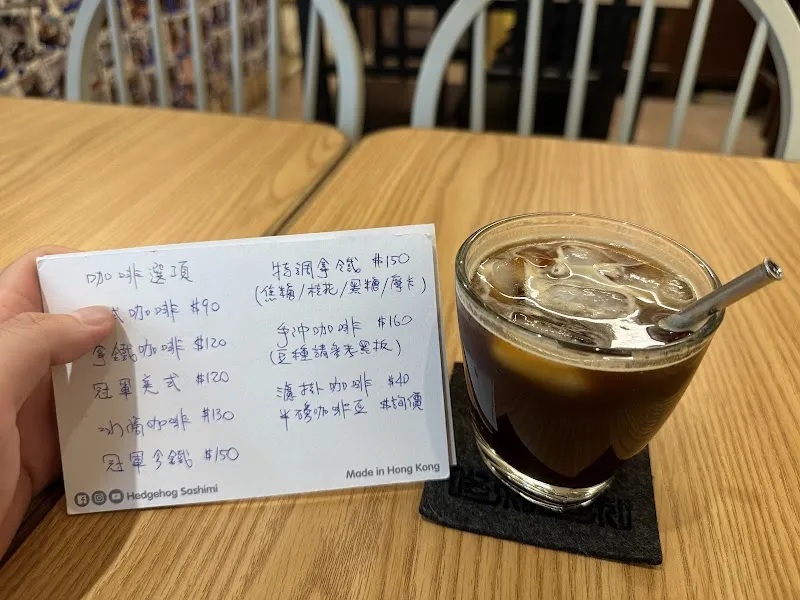 咖啡選項
式咖啡 $90
拿鐵咖啡 $120
冠軍美式 $120
冰滴咖啡 $130
冠軍拿鐵 $150
特調拿鐵 $150
(焦糖/桂花/黑糖/摩卡)
手沖咖啡 $160
(豆種請參考黑板)
濾掛咖啡 $40
半磅咖啡豆 $詢價
Hedgehog Sashimi
Made in Hong Kong